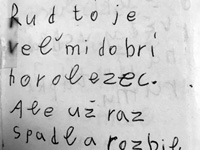 Rud to je
veľmi dobrí
horolezec.
Ale už raz
spadl a rozbil